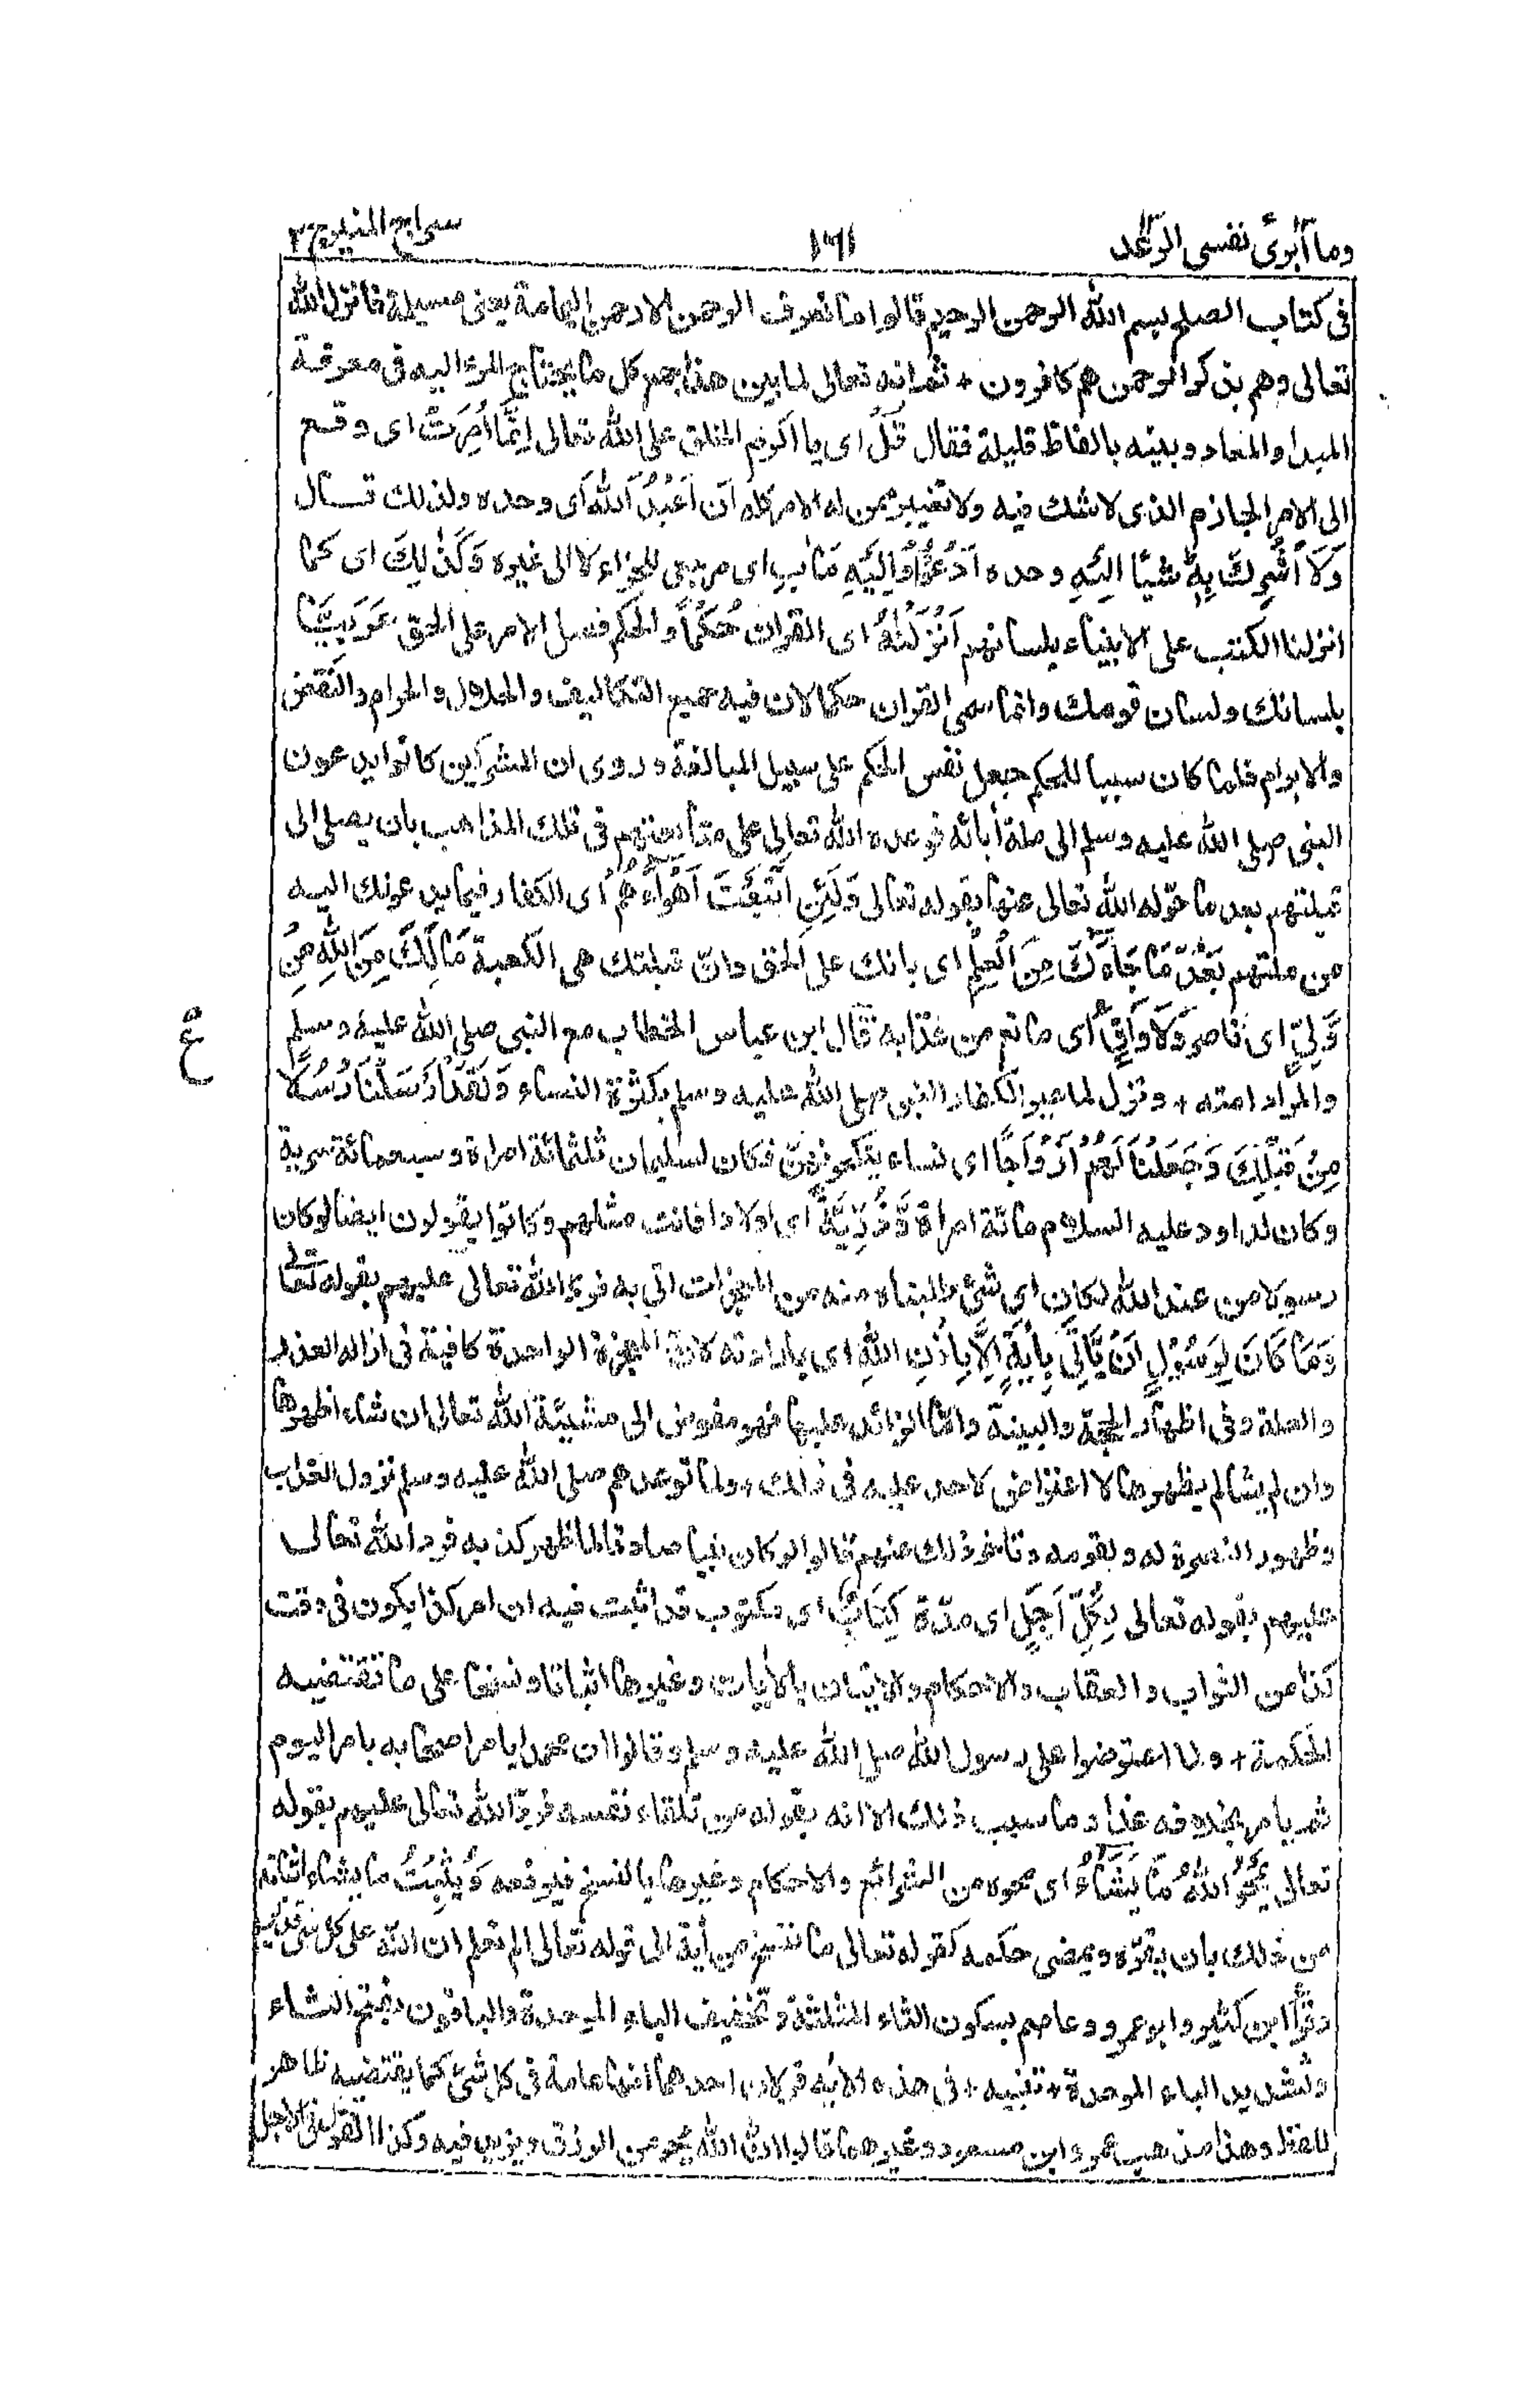 وما أبرئ نفسي الرعد
١٦١
سراج المنير ج ٢
فى كتاب الصلح بسم الله الرحمن الرحيم قالوا ما نعرف الرحمن الا رحمن اليمامة يعنى مسيلمة فانزل الله
تعالى وهم بذكر الرحمن هم كافرون + ثم انه تعالى لما بين هذا جمع كل ما يحتاج المرء اليه فى معرفة
المبدا والمعاد وبينه بالفاظ قليلة فقال قُلْ اى يا اكرم الخلق على الله تعالى اِنَّمَا اُمِرْتُ اى وقع
الى الامر الجازم الذى لا شك فيه ولا تغيير ممن له الامر كله اَنْ اَعْبُدَ اللهَ اى وحده ولذلك قال
وَلَا اُشْرِكَ بِهٖ شيئا اِلَيْهِ وحده اَدْعُوْا وَاِلَيْهِ مَاٰبِ اى مرجعى للجزاء لا الى غيره وَكَذٰلِكَ اى كما
انزلنا الكتب على الانبياء بلسانهم اَنْزَلْنٰهُ اى القران حُكْمًا والحكم فصل الامر على الحق عَرَبِيًّا
بلسانك ولسان قومك وانما سمى القران حكما لان فيه جميع التكاليف والحلال والحرام والنقض
والابرام فلما كان سببا للحكم جعل نفس الحكم على سبيل المبالغة وروى ان المشركين كانوا يدعون
النبى صلى الله عليه وسلم الى ملة أبائه فوعده الله تعالى على متابعتهم فى تلك المذاهب بان يصلى الى
قبلتهم بعد ما حوّله الله تعالى عنها بقوله تعالى وَلَئِنِ اتَّبَعْتَ اَهْوَآءَهُمْ اى الكفار فيما يدعونك اليه
من ملتهم بَعْدَ مَا جَآءَكَ مِنَ الْعِلْمِ اى بانك على الحق وانّ قبلتك هى الكعبة مَالَكَ مِنَ اللهِ مِنْ
وَّلِيٍّ اى ناصر وَلَا وَاقٍ اى مانع من عذابه قال ابن عباس الخطاب مع النبى صلى الله عليه وسلم
والمراد امته + ونزل لما عير الكفار النبى صلى الله عليه وسلم بكثرة النساء وَلَقَدْ اَرْسَلْنَا رُسُلًا
ع
مِنْ قَبْلِكَ وَجَعَلْنَا لَهُمْ اَزْوَاجًا اى نساء ينكحونهنّ فكان لسليمان ثلثمائة امراة وسبعمائة سرية
وكان لداود عليه السلام مائة امراة وَّذُرِّيَّةً اى اولادا فانت مثلهم وكانوا يقولون ايضا لو كان
رسولا من عند الله لكان اى شئ طلبناه منه من المعجزات اتى به فردّ الله تعالى عليهم بقوله تعالى
وَمَا كَانَ لِرَسُوْلٍ اَنْ يَّاْتِيَ بِاٰيَةٍ اِلَّا بِاِذْنِ اللهِ اى بارادته لانّ المعجزة الواحدة كافية فى ازالة العذر
والعلة وفى اظهار الحجة والبينة وامّا الزائد عليها فهو مفوض الى مشيئة الله تعالى ان شاء اظهرها
وان لم يشا لم يظهرها لا اعتراض لاحد عليه فى ذلك ولما توعدهم صلى الله عليه وسلم نزول العذاب
وظهور النصرة له ولقومه وتاخر ذلك عنهم قالوا لو كان نبيا صادقا لما ظهر كذبه فرد الله تعالى
عليهم بقوله تعالى لِكُلِّ اَجَلٍ اى مدّة كِتَابٌ اى مكتوب قد اثبت فيه ان امر كذا يكون فى وقت
كذا من الثواب والعقاب والاحكام والاتيان بالأيات وغيرها اثباتا ونسخا على ما تقتضيه
الحكمة + ولما اعترضوا على رسول الله صلى الله عليه وسلم وقالوا ان محمدا يامر اصحابه بامر اليوم
ثم يامر بخلافه غدا وما سبب ذلك الا انه يقوله من تلقاء نفسه فردّ الله تعالى عليهم بقوله
تعالى يَمْحُو اللهُ مَا يَشَآءُ اى محوه من الشرائع والاحكام وغيرها بالنسخ فيرفعه وَيُثْبِتُ ما يشاء اثباته
من ذلك بان يقرّه ويمضى حكمه كقوله تعالى ما ننسخ من أية الى قوله تعالى الم تعلم ان الله على كل شئ قدير
وقرأ ابن كثير وابو عمرو وعاصم بسكون الثاء المثلثة وتخفيف الباء الموحدة والباقون بفتح الثاء
وتشديد الباء الموحدة + تنبيه + فى هذه الأية قولان احدهما انها عامة فى كل شئ كما يقتضيه ظاهر
اللفظ وهذا مذهب عمر وابن مسعود وغيرهما قالوا انّ الله يمحو من الرزق ويزيد فيه وكذا القول فى الاجل